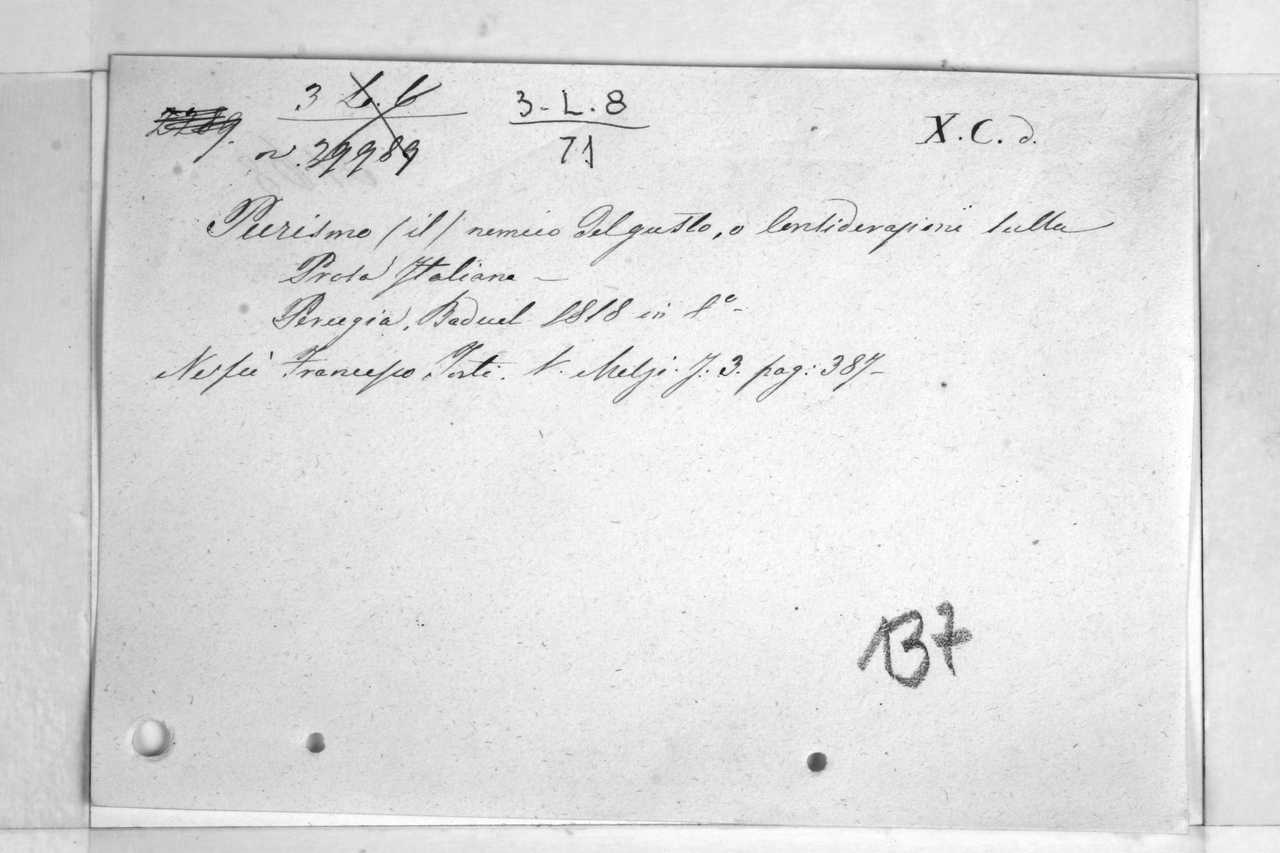 3 L. C 3-L.8 X.C.d.
n. 29989 71
Purismo (il) nemico del gusto, o Considerazioni sulla
Prosa Italiana -
Perugia, Baduel 1818 in 8°-
Ne fù Francesco Torti. V. Melzi. T. 3. pag: 387-
137